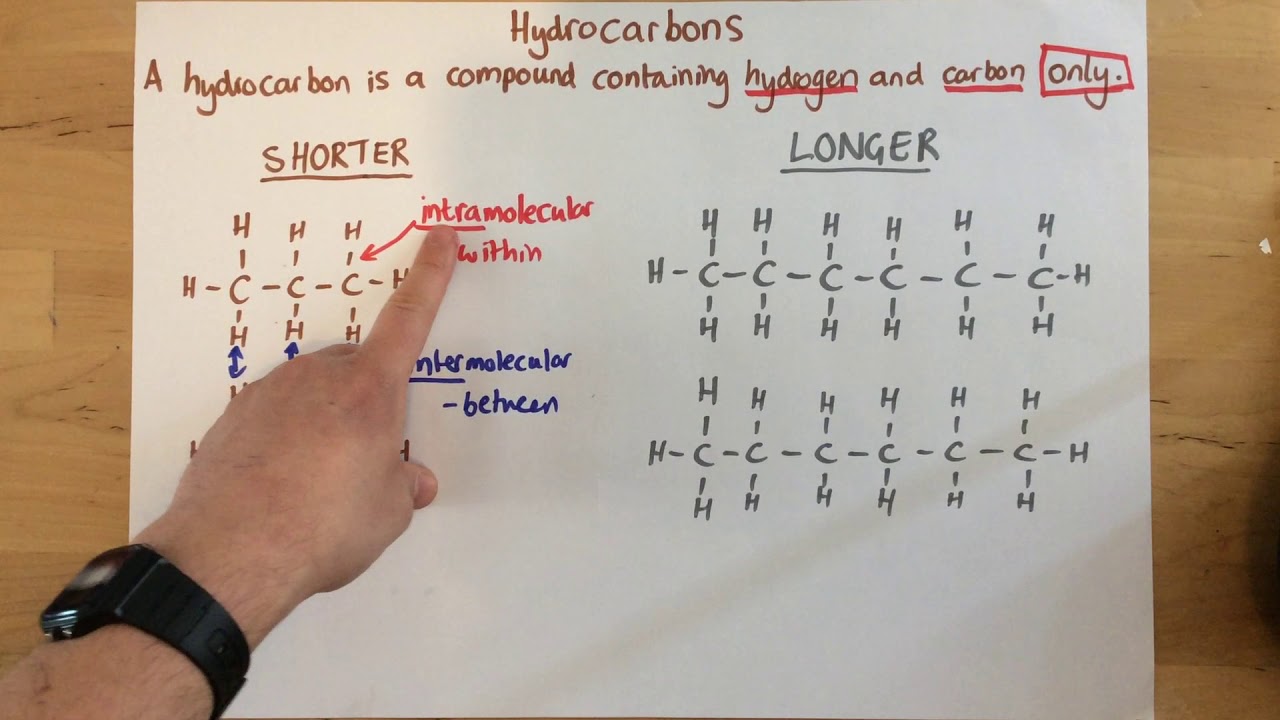 Hydrocarbons
A hydrocarbon is a compound containing hydrogen and carbon only.
SHORTER
LONGER
intramolecular
within
H H H
H - C - C - C - H
H H H
ntermolecular
- between
H H H H H H
H - C - C - C - C - C - C - H
H H H H H H
H H H H H H
H - C - C - C - C - C - C - H
H H H H H H